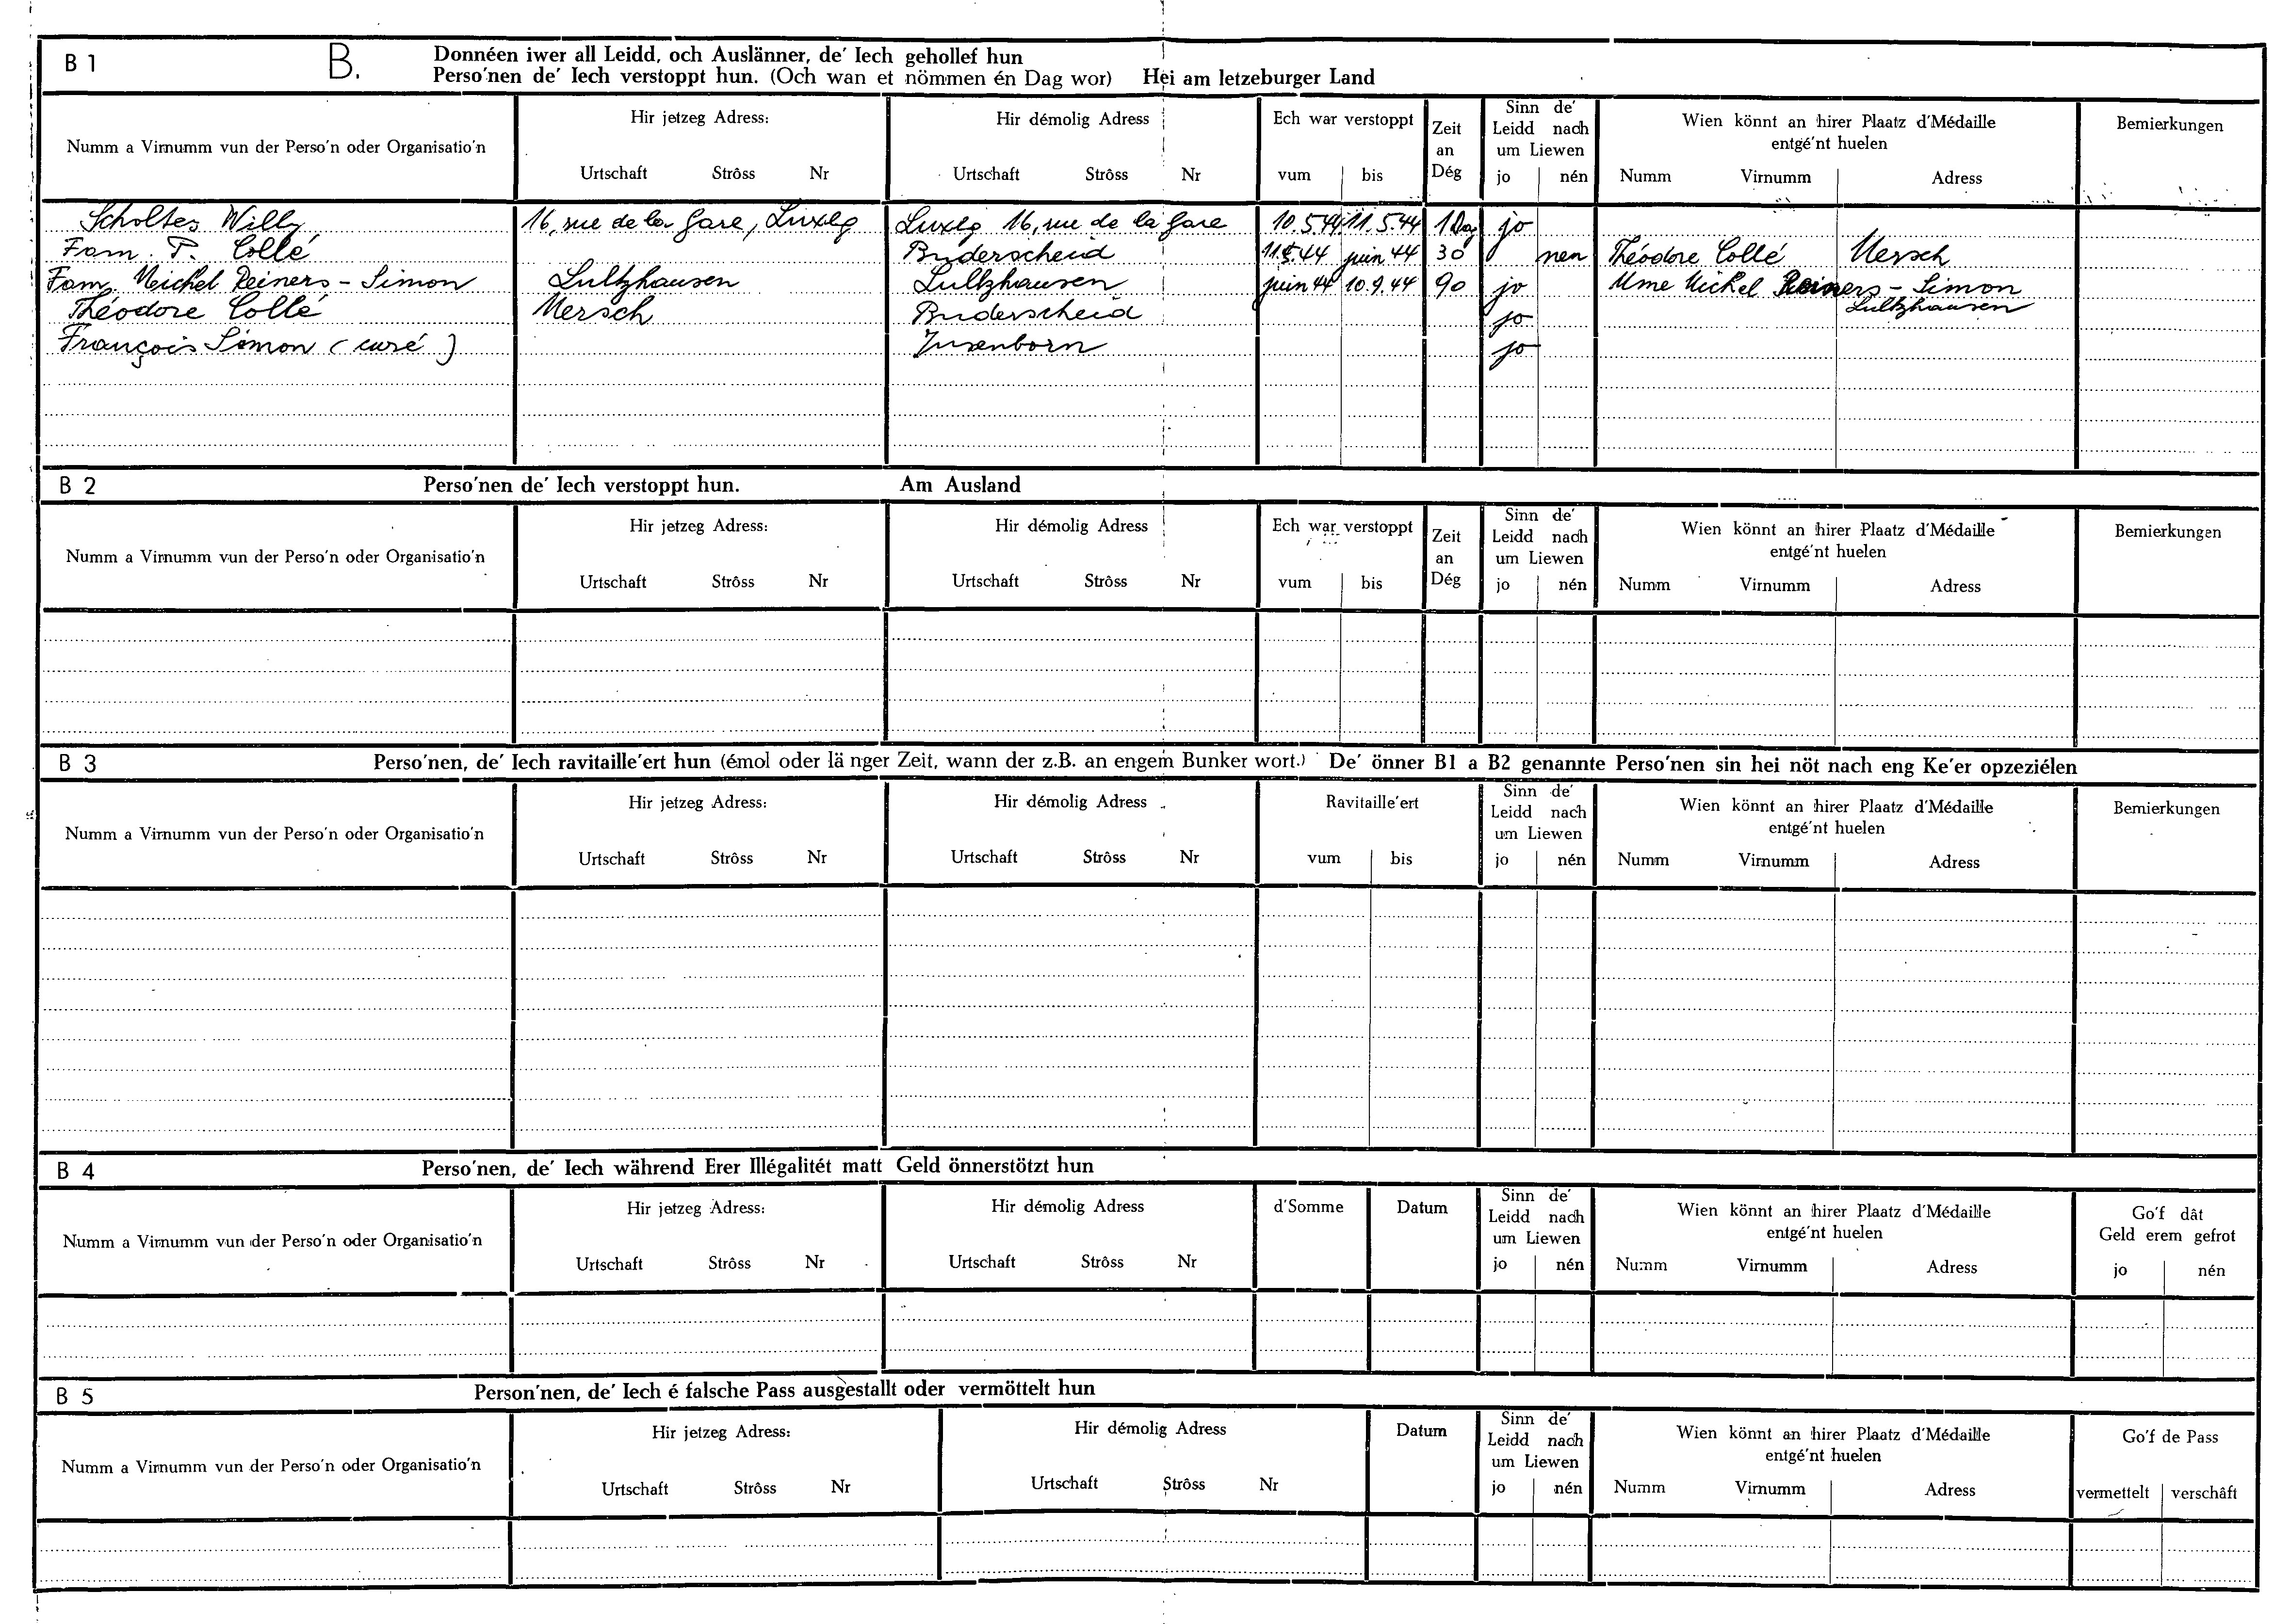 B 1 B. Donnéen iwer all Leidd, och Auslänner, de' Iech gehollef hun
Perso'nen de' Iech verstoppt hun. (Och wan et nömmen én Dag wor) Hei am letzeburger Land
Numm a Virnumm vun der Perso'n oder Organisatio'n
Hir jetzeg Adress:
Urtschaft Strôss Nr
Hir démolig Adress
Urtschaft Strôss Nr
Ech war verstoppt
vum bis
Zeit
an
Dég
Sinn de'
Leidd nach
um Liewen
jo nén
Wien könnt an hirer Plaatz d'Médaille
entgé'nt huelen
Numm Virnumm Adress
Bemierkungen
Scholtes Willy 16, rue de la Gare, Luxbg Luxbg 16, rue de la Gare 10.5.44 11.5.44 1 Dag jo
Fam. P. Collé Buderscheid 11.5.44 juin 44 30 nen Théodore Collé Mersch
Fam. Michel Reiners - Simon Lultzhausen Lultzhausen juin 44 10.9.44 90 jo Mme Michel Reiners - Simon
Lultzhausen
Théodore Collé Mersch Buderscheid jo
François Simon (curé) Insenborn jo
B 2 Perso'nen de' Iech verstoppt hun. Am Ausland
Numm a Virnumm vun der Perso'n oder Organisatio'n
Hir jetzeg Adress:
Urtschaft Strôss Nr
Hir démolig Adress
Urtschaft Strôss Nr
Ech war verstoppt
vum bis
Zeit
an
Dég
Sinn de'
Leidd nach
um Liewen
jo nén
Wien könnt an hirer Plaatz d'Médaille
entgé'nt huelen
Numm Virnumm Adress
Bemierkungen
B 3 Perso'nen, de' Iech ravitaille'ert hun (émol oder länger Zeit, wann der z.B. an engem Bunker wort.) De' önner B1 a B2 genannte Perso'nen sin hei nöt nach eng Ke'er opzeziélen
Numm a Virnumm vun der Perso'n oder Organisatio'n
Hir jetzeg Adress:
Urtschaft Strôss Nr
Hir démolig Adress
Urtschaft Strôss Nr
Ravitaille'ert
vum bis
Sinn de'
Leidd nach
um Liewen
jo nén
Wien könnt an hirer Plaatz d'Médaille
entgé'nt huelen
Numm Virnumm Adress
Bemierkungen
B 4 Perso'nen, de' Iech während Erer Illégalitét matt Geld önnerstötzt hun
Numm a Virnumm vun der Perso'n oder Organisatio'n
Hir jetzeg Adress:
Urtschaft Strôss Nr
Hir démolig Adress
Urtschaft Strôss Nr
d'Somme
Datum
Sinn de'
Leidd nach
um Liewen
jo nén
Wien könnt an hirer Plaatz d'Médaille
entgé'nt huelen
Numm Virnumm Adress
Go'f dât
Geld erem gefrot
jo nén
B 5 Person'nen, de' Iech é falsche Pass ausgestallt oder vermöttelt hun
Numm a Virnumm vun der Perso'n oder Organisatio'n
Hir jetzeg Adress:
Urtschaft Strôss Nr
Hir démolig Adress
Urtschaft Strôss Nr
Datum
Sinn de'
Leidd nach
um Liewen
jo nén
Wien könnt an hirer Plaatz d'Médaille
entgé'nt huelen
Numm Virnumm Adress
Go'f de Pass
vermettelt verschâft